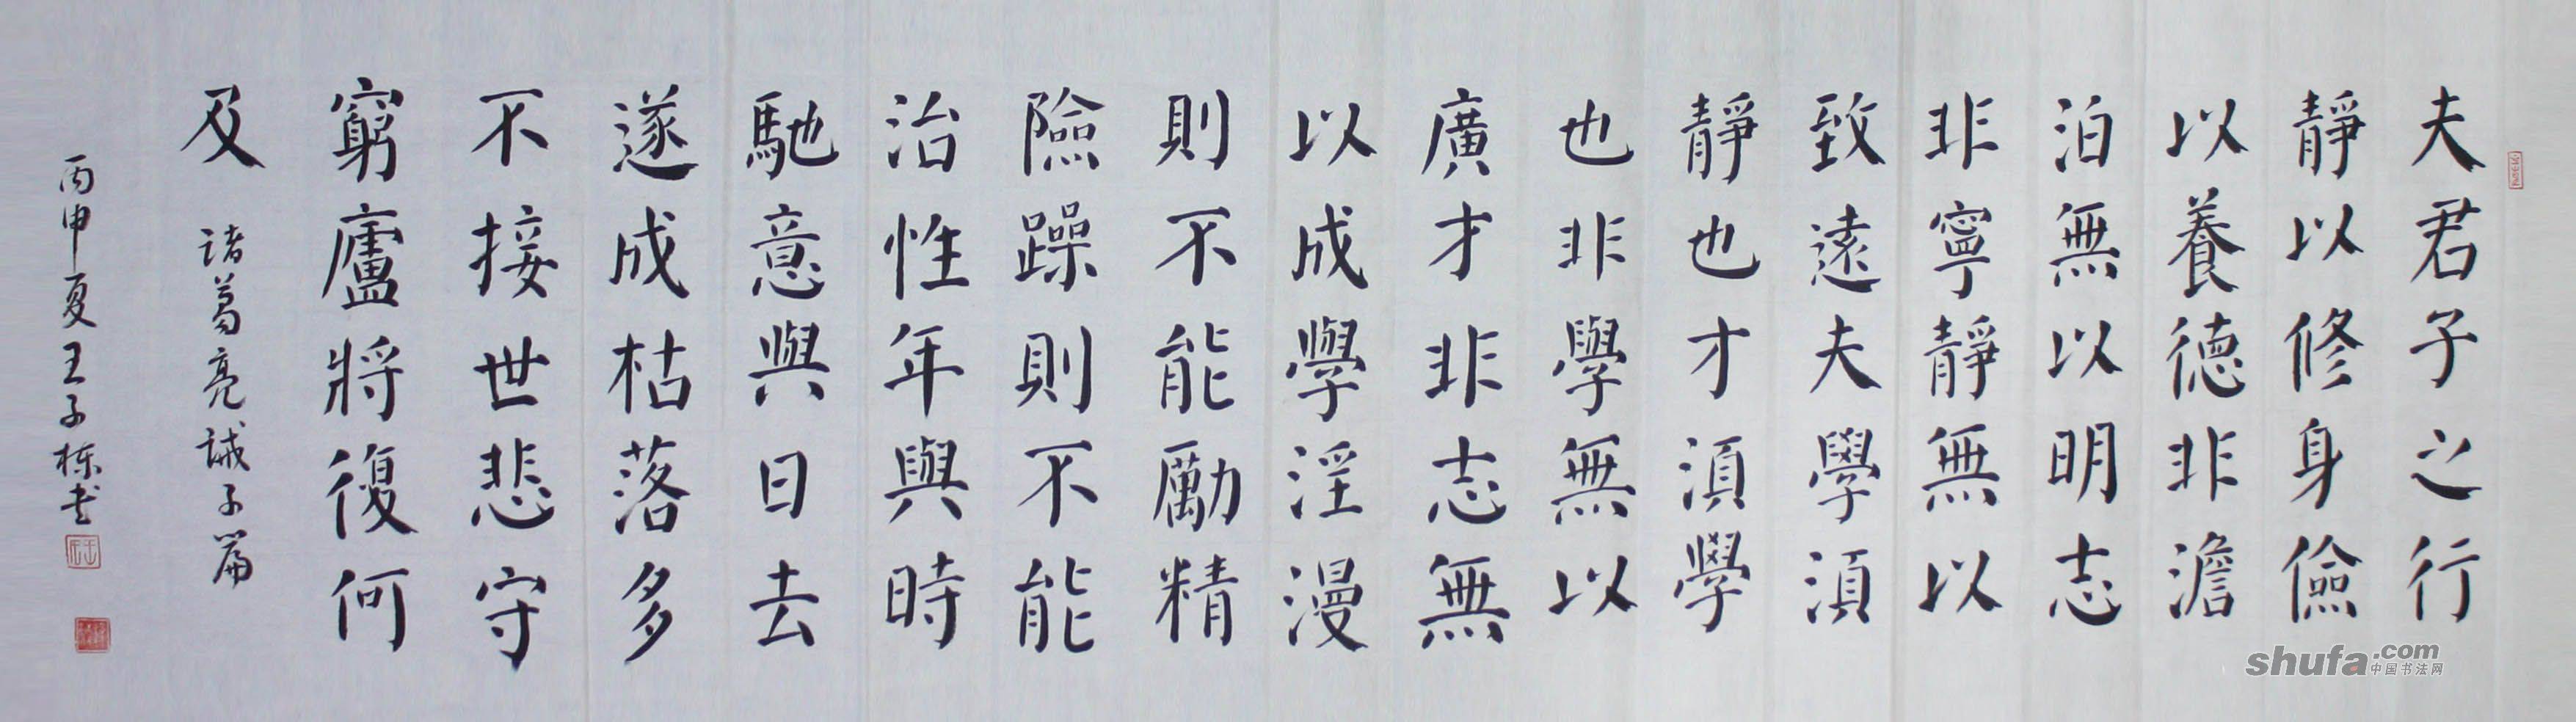 夫君子之行
靜以修身儉
以養德非澹
泊無以明志
非寧靜無以
致遠夫學須
靜也才須學
也非學無以
廣才非志無
以成學淫漫
則不能勵精
險躁則不能
治性年與時
馳意與日去
遂成枯落多
不接世悲守
窮廬將復何
及
诸葛亮诫子篇
丙申夏王子栋书
shufa.com
中国书法网